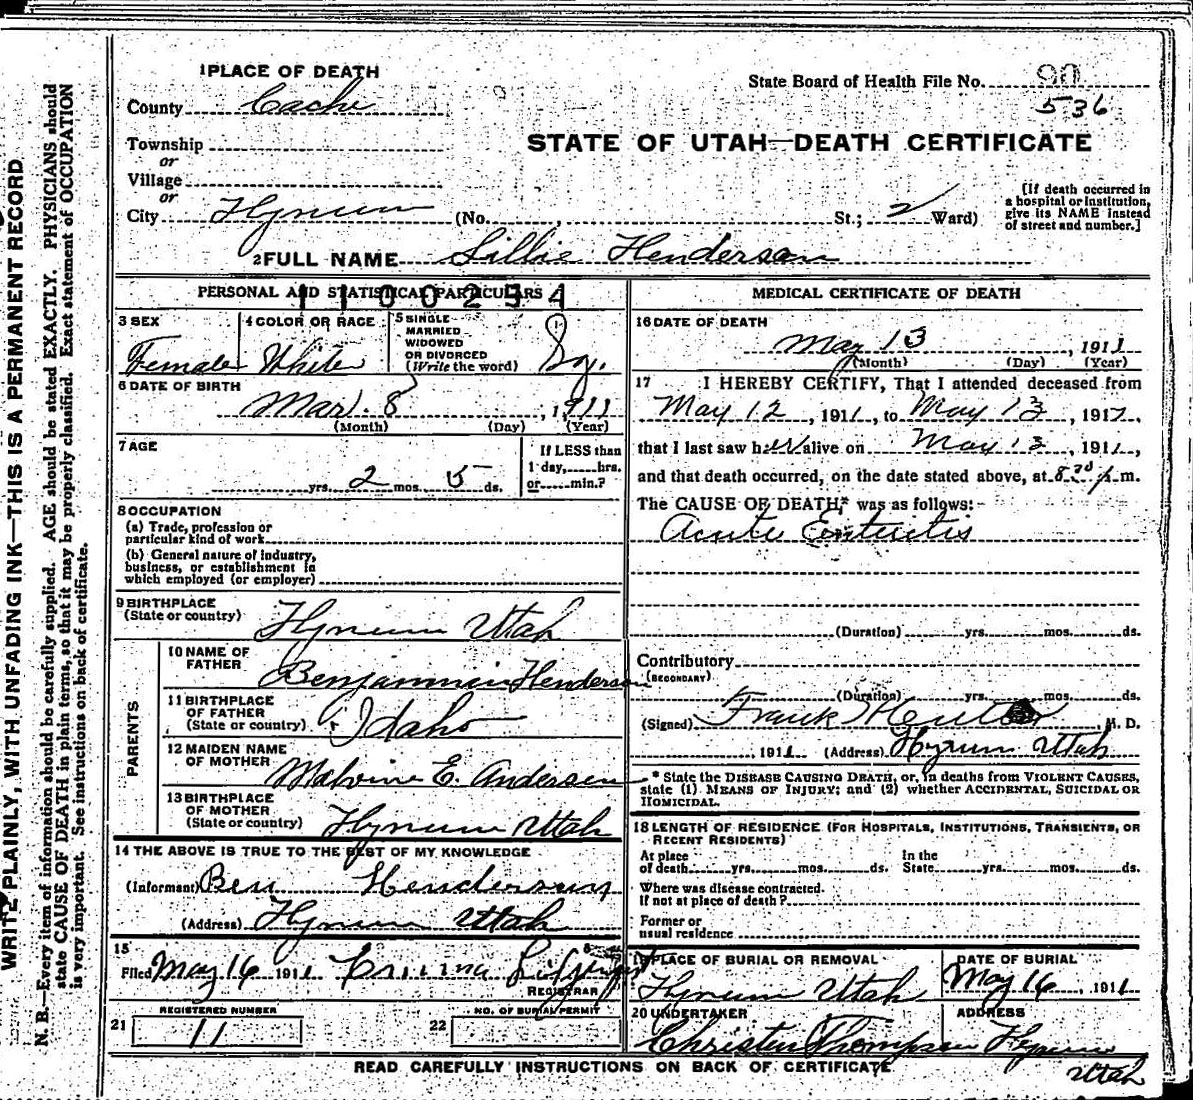 1 PLACE OF DEATH
County Cache
State Board of Health File No. 90
536
Township
or
STATE OF UTAH—DEATH CERTIFICATE
Village
or
City Hyrum (No. , St.; 2 Ward)
[If death occurred in a hospital or institution, give its NAME instead of street and number.]
2 FULL NAME Lillie Henderson
PERSONAL AND STATISTICAL PARTICULARS
1100294
3 SEX
Female
4 COLOR OR RACE
White
5 SINGLE
MARRIED
WIDOWED
OR DIVORCED
(Write the word)
6 DATE OF BIRTH
Mar. 8, 1911
(Month) (Day) (Year)
7 AGE
yrs. 2 mos. 5 ds.
If LESS than
1 day, hrs.
or min.?
8 OCCUPATION
(a) Trade, profession or
particular kind of work
(b) General nature of industry,
business, or establishment in
which employed (or employer)
9 BIRTHPLACE
(State or country) Hyrum Utah
PARENTS
10 NAME OF
FATHER Benjammin Henderson
11 BIRTHPLACE
OF FATHER
(State or country) Idaho
12 MAIDEN NAME
OF MOTHER Malvine E. Andersen
13 BIRTHPLACE
OF MOTHER
(State or country) Hyrum Utah
14 THE ABOVE IS TRUE TO THE BEST OF MY KNOWLEDGE
(Informant) Ben Henderson
(Address) Hyrum Utah
15
Filed May 16 1911
REGISTRAR
REGISTERED NUMBER
21 11
NO. OF BURIAL PERMIT
22
MEDICAL CERTIFICATE OF DEATH
16 DATE OF DEATH
May 13, 1911
(Month) (Day) (Year)
17 I HEREBY CERTIFY, That I attended deceased from
May 12, 1911, to May 13, 1911,
that I last saw her alive on May 13, 1911,
and that death occurred, on the date stated above, at 8:30 p.m.
The CAUSE OF DEATH,* was as follows:
Acute Enteritis
(Duration) yrs. mos. ds.
Contributory
(SECONDARY)
(Duration) yrs. mos. ds.
(Signed) Frank , M. D.
, 1911 (Address) Hyrum Utah
* State the DISEASE CAUSING DEATH, or, in deaths from VIOLENT CAUSES,
state (1) MEANS OF INJURY; and (2) whether ACCIDENTAL, SUICIDAL OR
HOMICIDAL.
18 LENGTH OF RESIDENCE (FOR HOSPITALS, INSTITUTIONS, TRANSIENTS, OR
RECENT RESIDENTS)
At place
of death yrs. mos. ds. In the
State yrs. mos. ds.
Where was disease contracted.
if not at place of death?
Former or
usual residence
19 PLACE OF BURIAL OR REMOVAL
Hyrum Utah
DATE OF BURIAL
May 16, 1911
20 UNDERTAKER
Christen Thompson
ADDRESS
Hyrum
Utah
READ CAREFULLY INSTRUCTIONS ON BACK OF CERTIFICATE
WRITE PLAINLY, WITH UNFADING INK—THIS IS A PERMANENT RECORD
N. B.—Every item of information should be carefully supplied. AGE should be stated EXACTLY. PHYSICIANS should
state CAUSE OF DEATH in plain terms, so that it may be properly classified. Exact statement of OCCUPATION
is very important. See instructions on back of certificate.